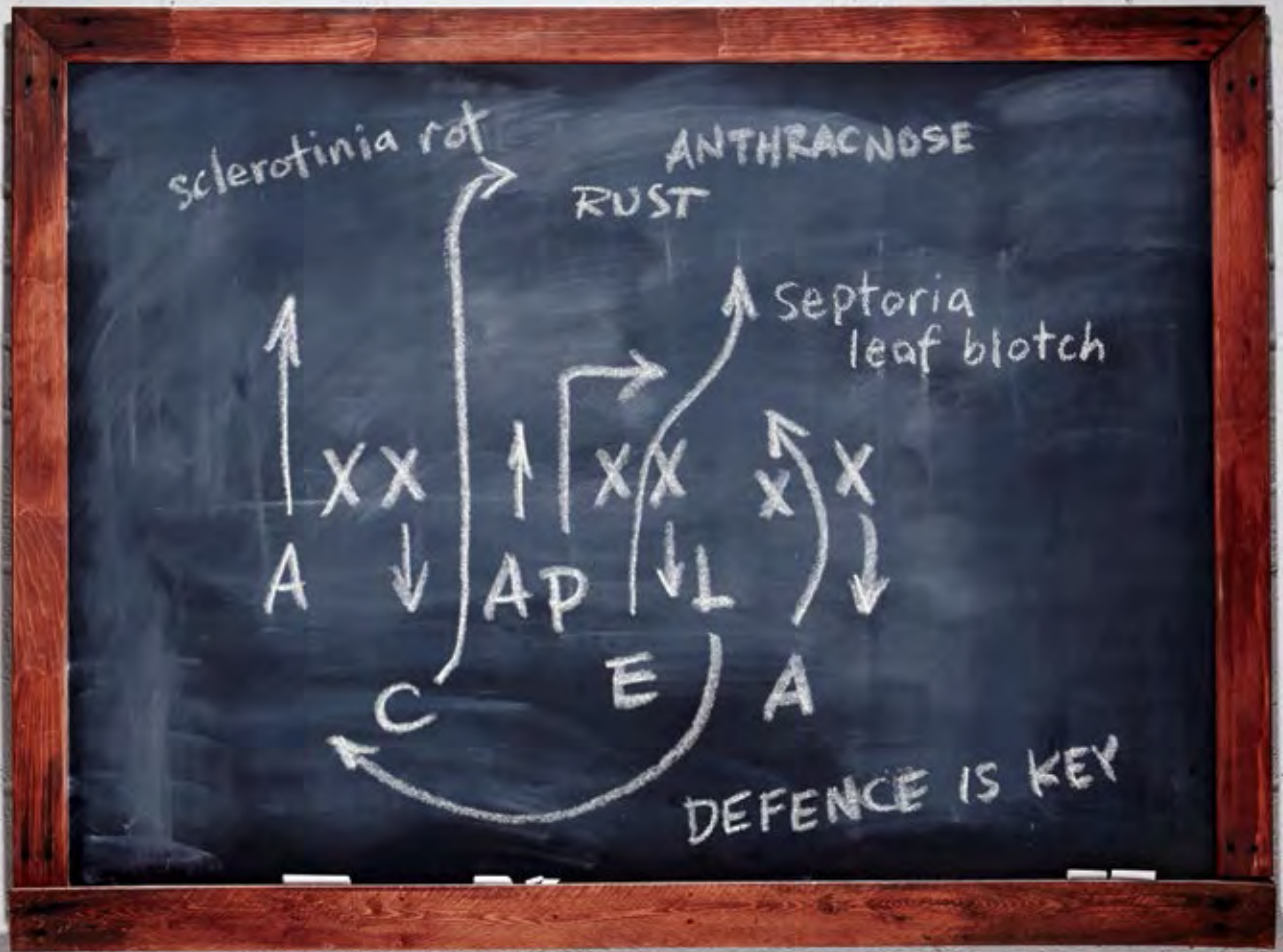 sclerotinia rot
ANTHRACNOSE
RUST
septoria
leaf blotch
X X X X X X
A A P L
C E A
DEFENCE IS KEY